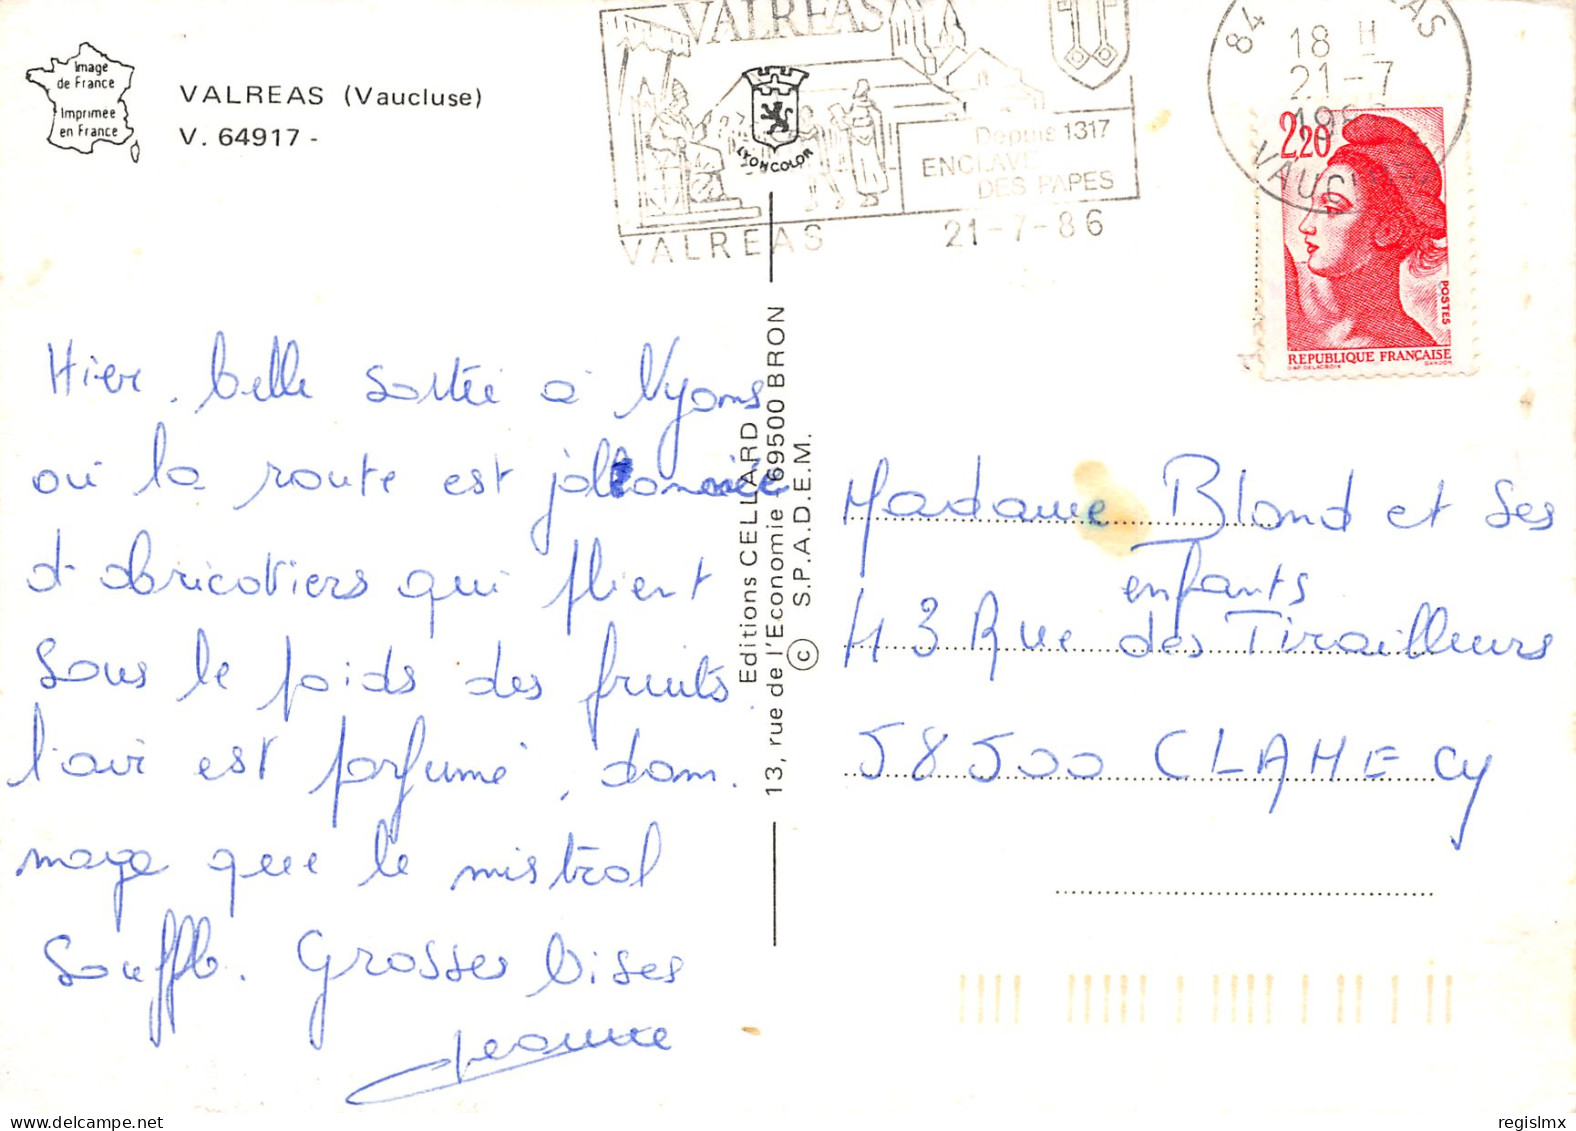 Image
de France
Imprimée
en France
VALREAS (Vaucluse)
V. 64917 -
VALREAS
LYONCOLOR
Depuis 1317
ENCLAVE
DES PAPES
VALREAS
21-7-86
84
18 H
21-7
VAUCL
2,20
POSTES
REPUBLIQUE FRANÇAISE
DAP. DELACROIX
GANDON
Hier, belle sortie à Nyons
où la route est jalonnée
d'abricotiers qui plient
sous le poids des fruits.
l'air est parfumé, dom.
mage que le mistral
souffle. Grosses bises
Jeanne
Editions CELLARD
13, rue de l'Economie - 69500 BRON
© S.P.A.D.E.M.
Madame Blond et ses
enfants
43 Rue des Tirailleurs
58500 CLAMECY
regislmx